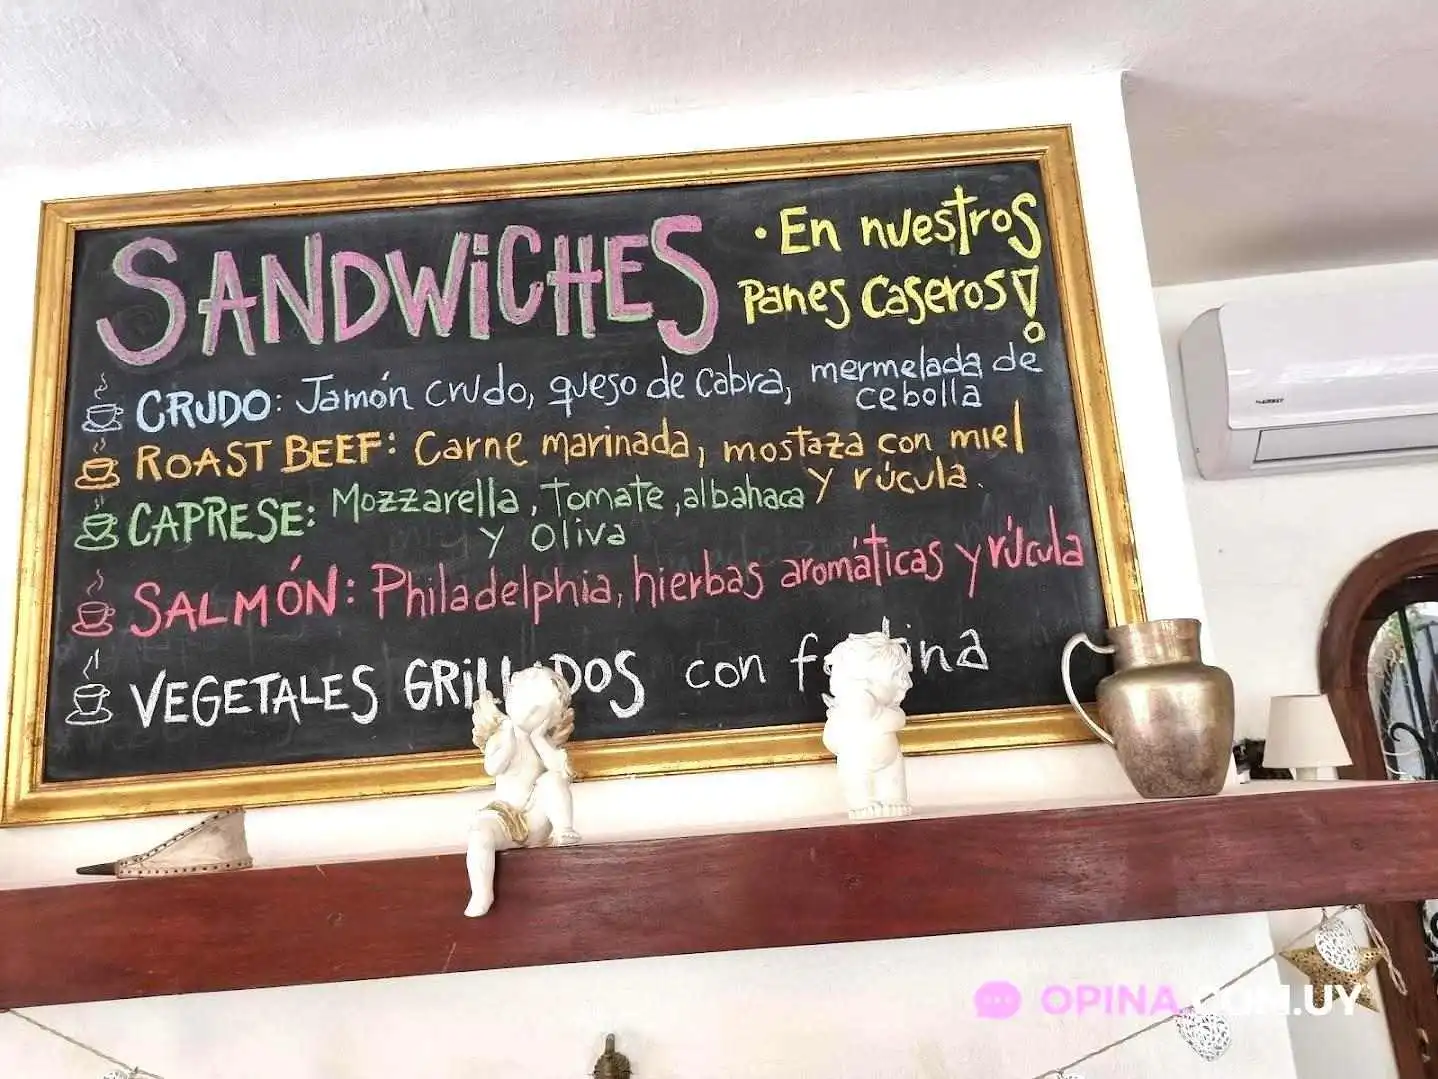 SANDWiCHES
· En nuestros
panes caseros!
CRUDO: Jamón crudo, queso de cabra, mermelada de
cebolla
ROAST BEEF: Carne marinada, mostaza con miel
y rúcula.
CAPRESE: Mozzarella, tomate, albahaca
y oliva
SALMÓN: Philadelphia, hierbas aromáticas y rúcula
VEGETALES con
OPINA.COM.UY